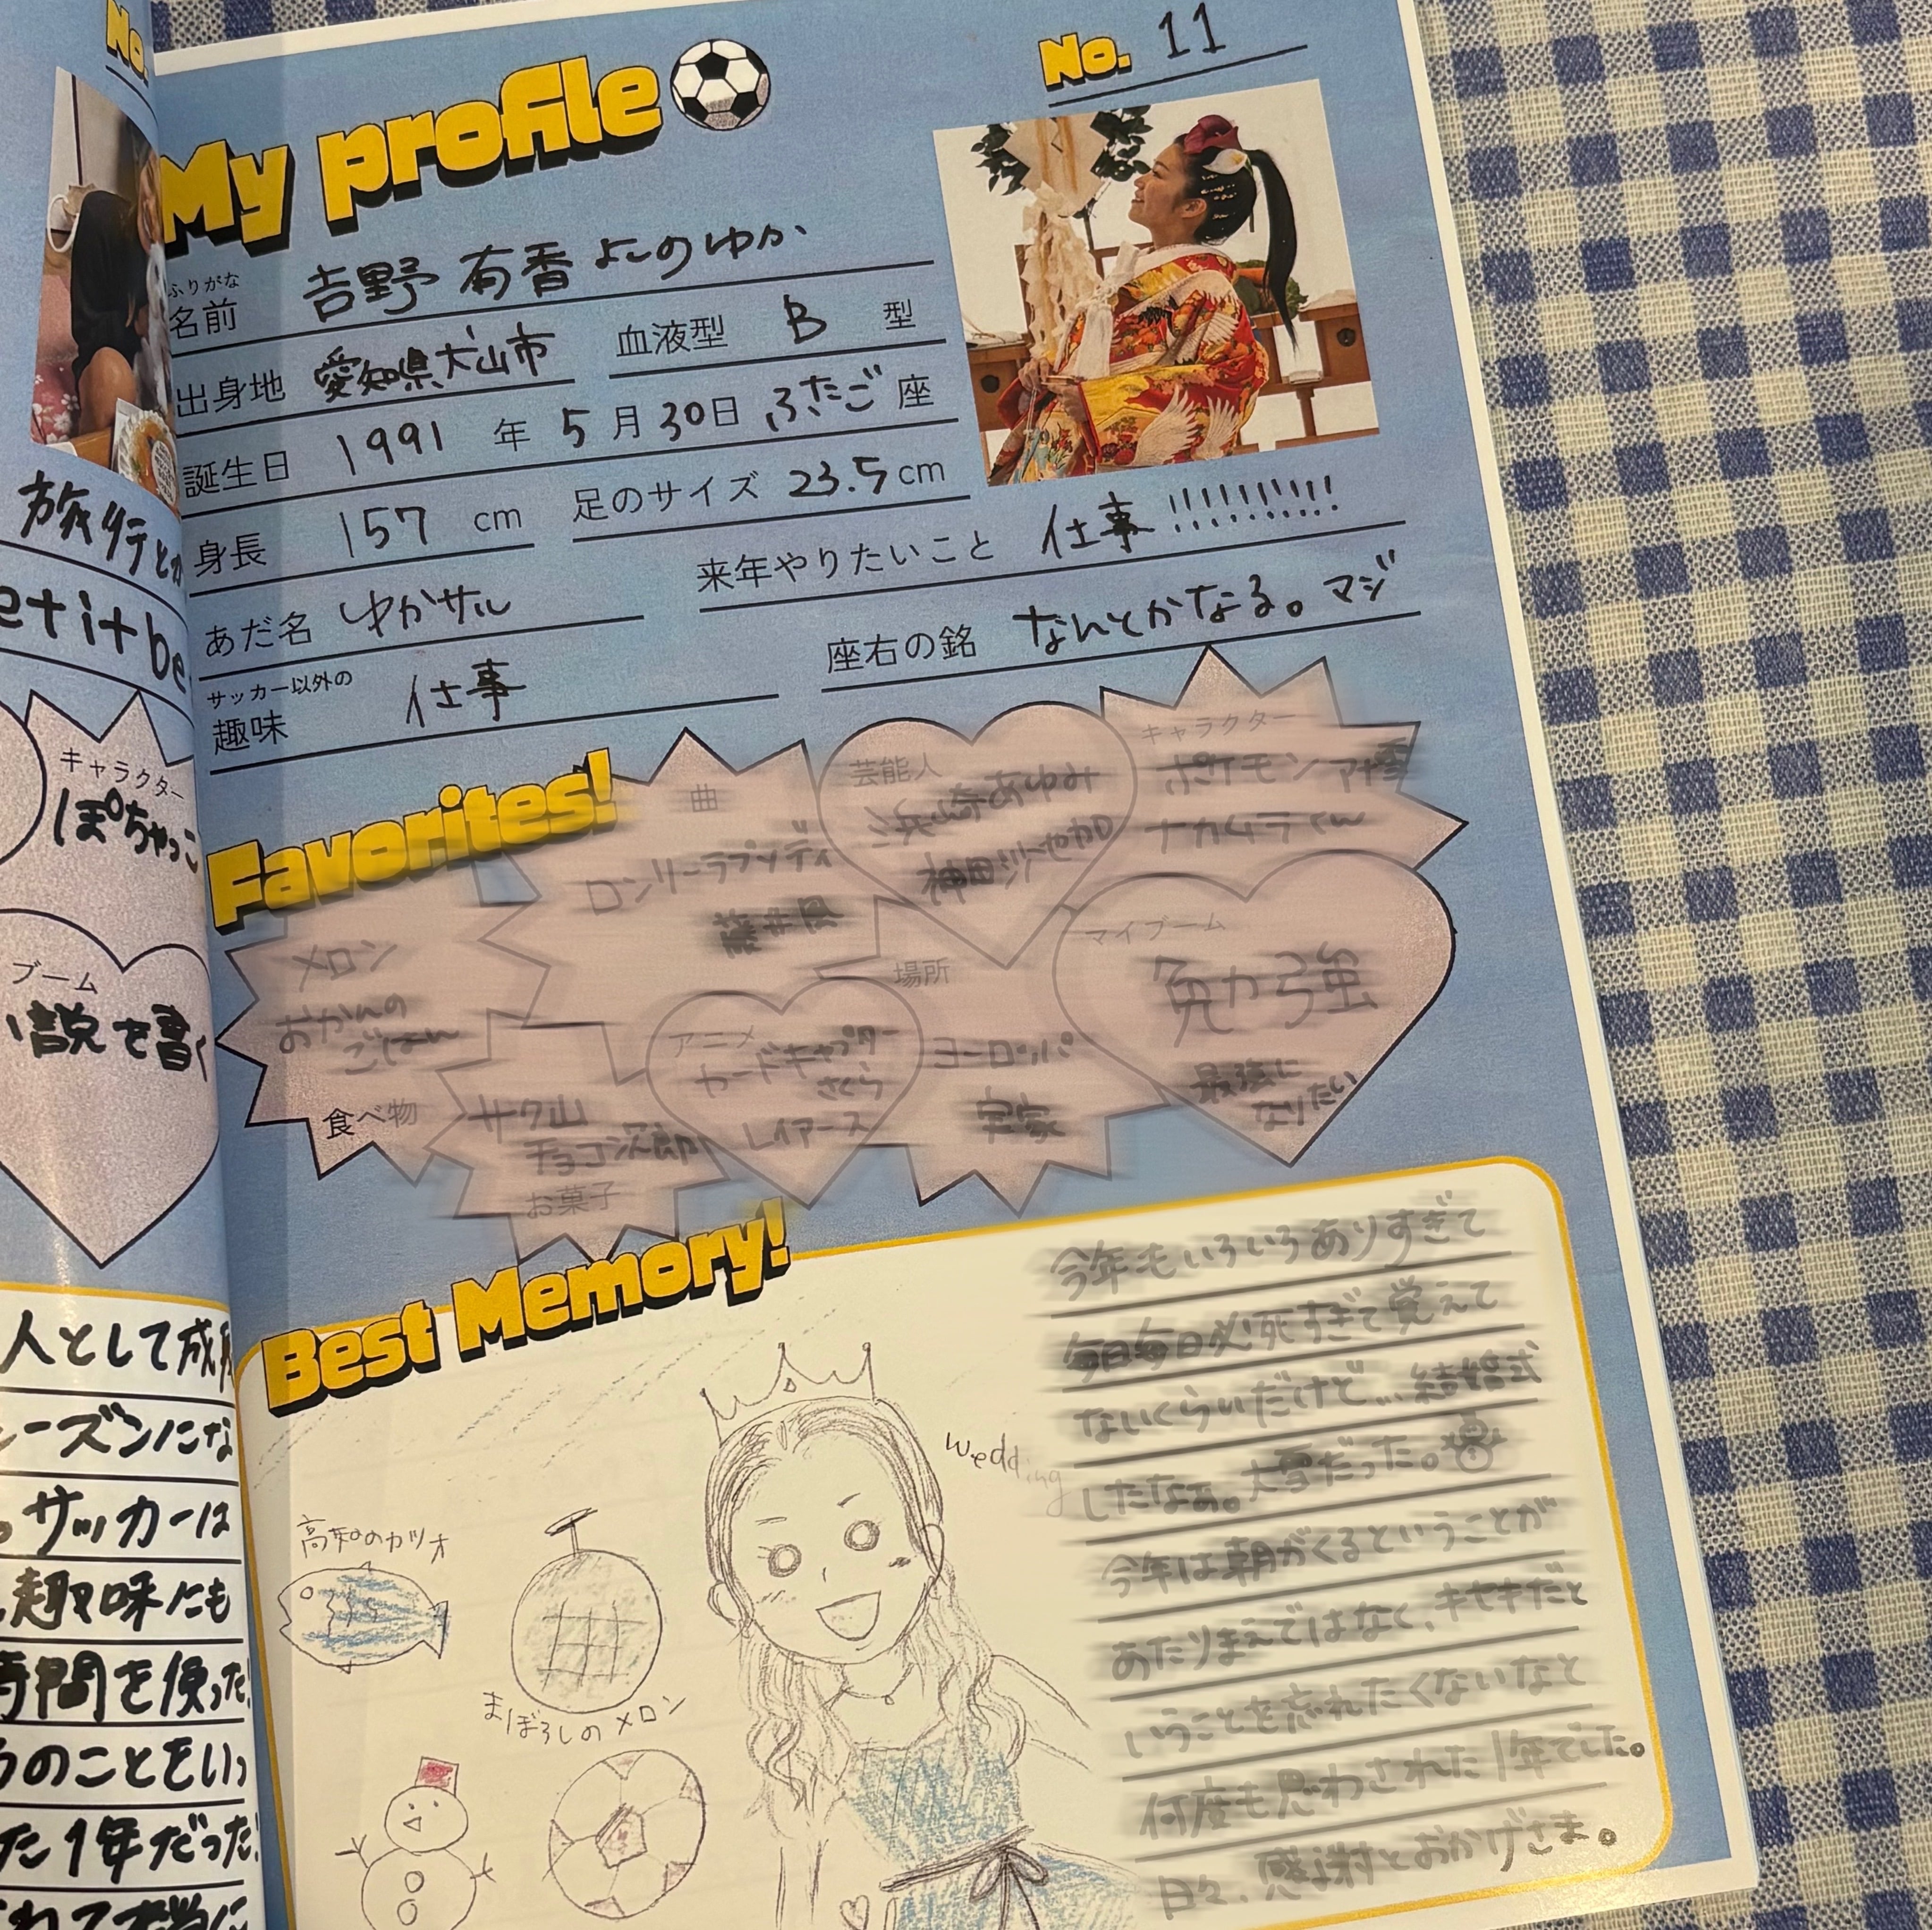 No.
旅行とか
et it be
キャラクター
ぽちゃっこ
ブーム
説を書く
人として成
ーズンにな
。サッカーは
趣味にも
時間を使った!
のことをいっ
た1年だった!
My profile
No. 11
ふりがな
名前 吉野 有香 よしのゆか
出身地 愛知県犬山市 血液型 B 型
誕生日 1991 年 5 月 30日 ふたご 座
身長 157 cm 足のサイズ 23.5 cm
あだ名 ゆかサル 来年やりたいこと 仕事!!!!!!!!!!
サッカー以外の
趣味 仕事 座右の銘 なんとかなる。マジ
Favorites!
曲
ロンリーラプソディ
藤井風
芸能人
浜崎あゆみ
神田沙也加
キャラクター
ポケモン
ナカムラくん
メロン
おかんの
ごはん
食べ物
サク山
チョコ次郎
お菓子
アニメ
カードキャプター
さくら
レイアース
場所
ヨーロッパ
実家
マイブーム
勉強
最強に
なりたい
Best Memory!
高知のカツオ
まぼろしのメロン
wedding
今年もいろいろありすぎて
毎日毎日必死すぎて覚えて
ないくらいだけど...結婚式
したなぁ。大雪だった。
今年は朝がくるということが
あたりまえではなく、キセキだと
いうことを忘れたくないなと
何度も思わされた1年でした。
日々、感謝とおかげさま。